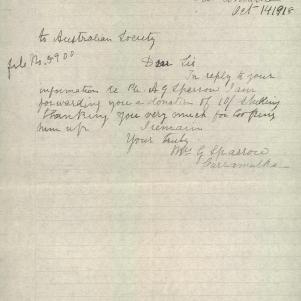 Oct 14 1918
to Australian Society
file No. 5900
Dear Sir
In reply to your
information re Pte A G Sparrow I am
forwarding you a donation of 10/ Sterling
thanking you very much for looking
him up
I remain
Yours truly
Mrs G Sparrow